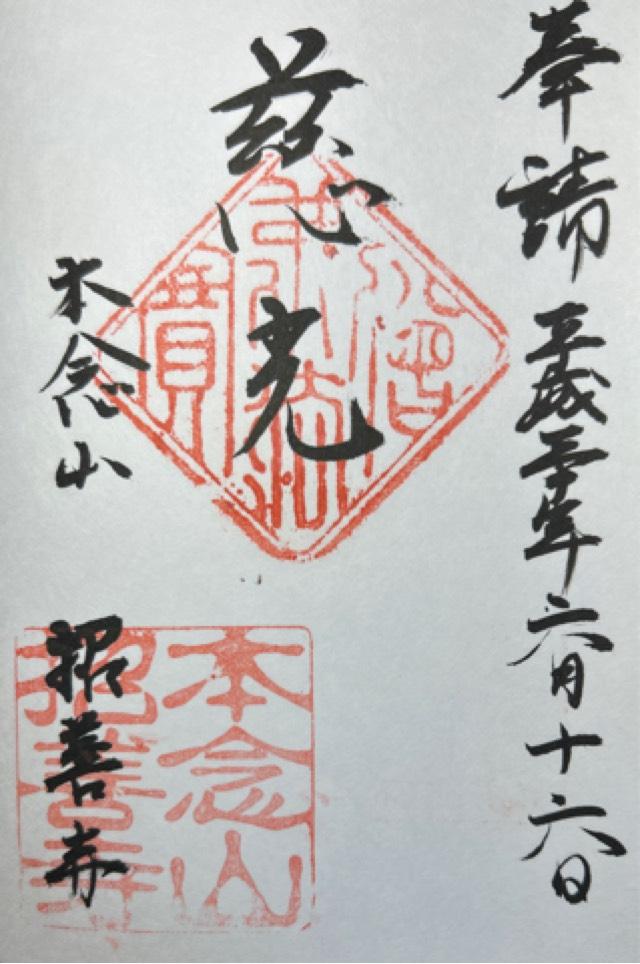 奉請 平成三十年六月十六日
慈光
本念山
招善寺
本念山
招善寺